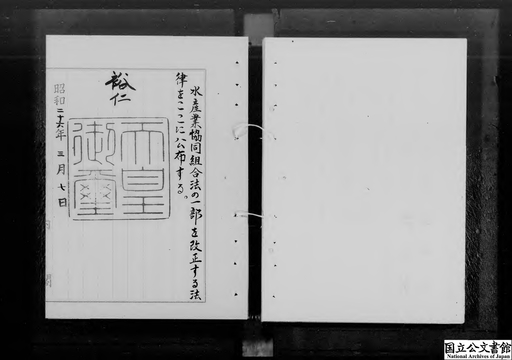 水産業協同組合法の一部を改正する法
律をここに公布する。
裕仁
天皇
御璽
昭和二十六年三月七日
内閣
国立公文書館
National Archives of Japan